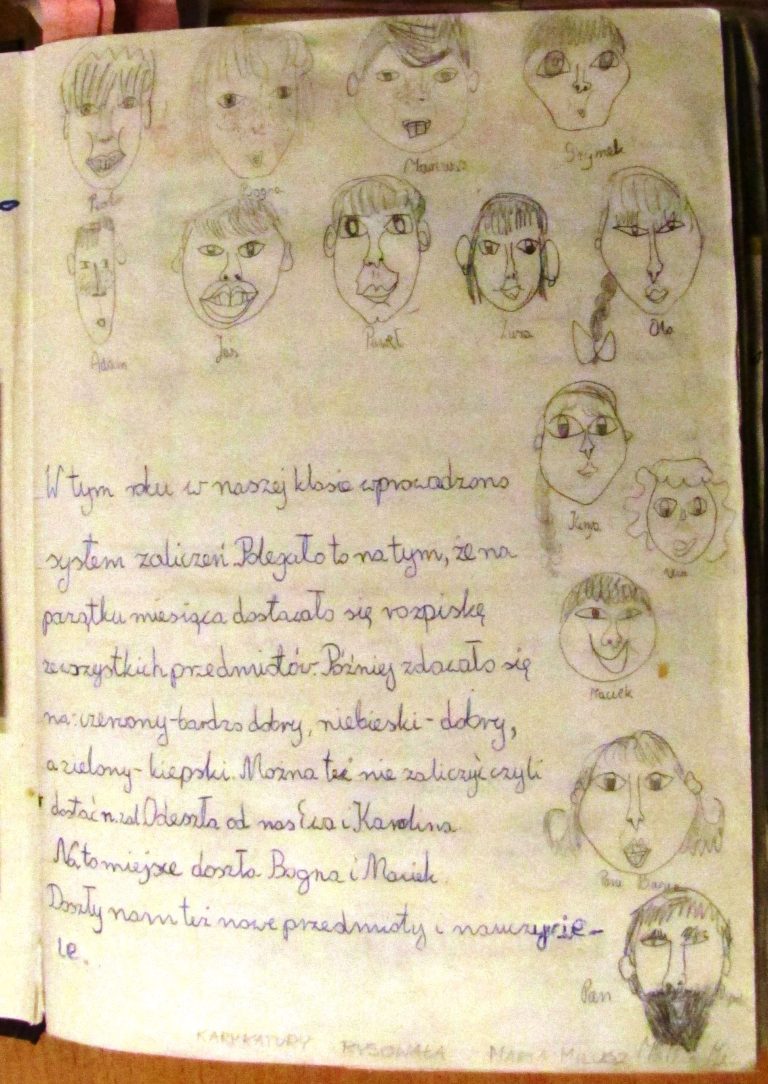 Bogna
Mariusz
Grymek
Adam
Jaś
Paweł
Zuza
Ola
Kinga
Maciek
W tym roku w naszej klasie wprowadzono
system zaliczeń. Polegało to na tym, że na
początku miesiąca dostawało się rozpiskę
ze wszystkich przedmiotów. Później zdawało się
na: czerwony - bardzo dobry, niebieski - dobry,
a zielony - kiepski. Można też nie zaliczyć czyli
dostać n.zal. Odeszła od nas Ewa i Karolina
Na to miejsce doszła Bogna i Maciek.
Doszły nam też nowe przedmioty i nauczycie-
le.
Pani
Pan
KARYKATURY RYSOWAŁA